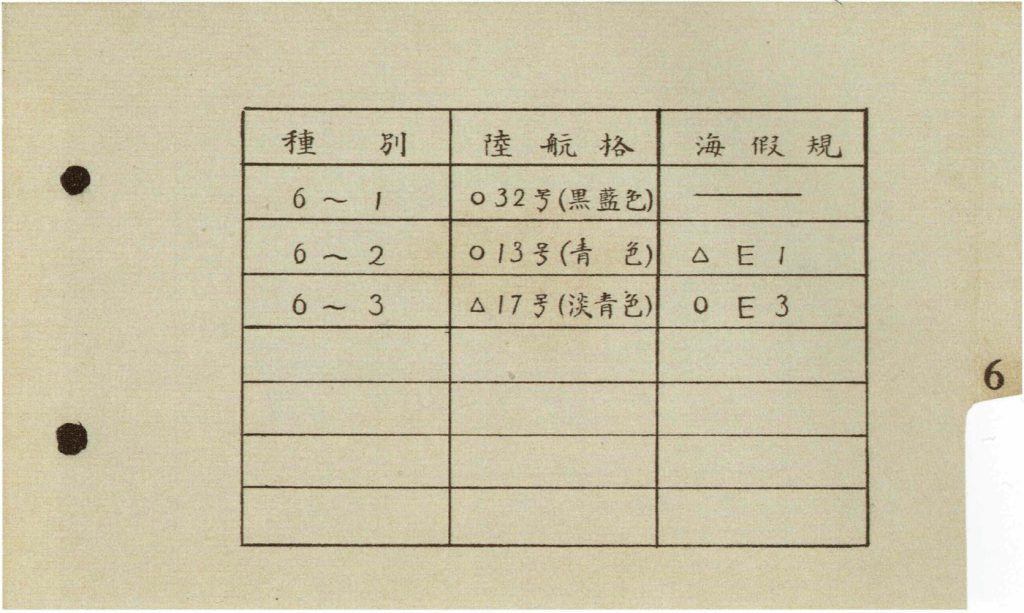 種 別 陸 航 格 海 假 規
6 ~ 1 ○ 32号(黒藍色) ―――
6 ~ 2 ○ 13号(青 色) △ E 1
6 ~ 3 △ 17号(淡青色) ○ E 3
6